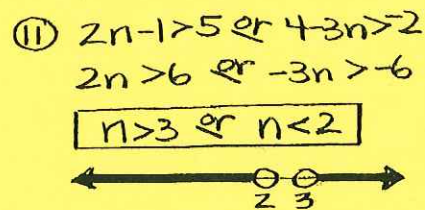 ⑪ 2n-1>5 or 4-3n>-2
2n>6 or -3n>-6
n>3 or n<2
2 3